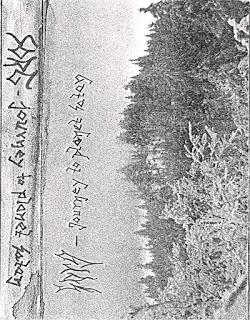 - journey to planet satan
- journey to planet satan